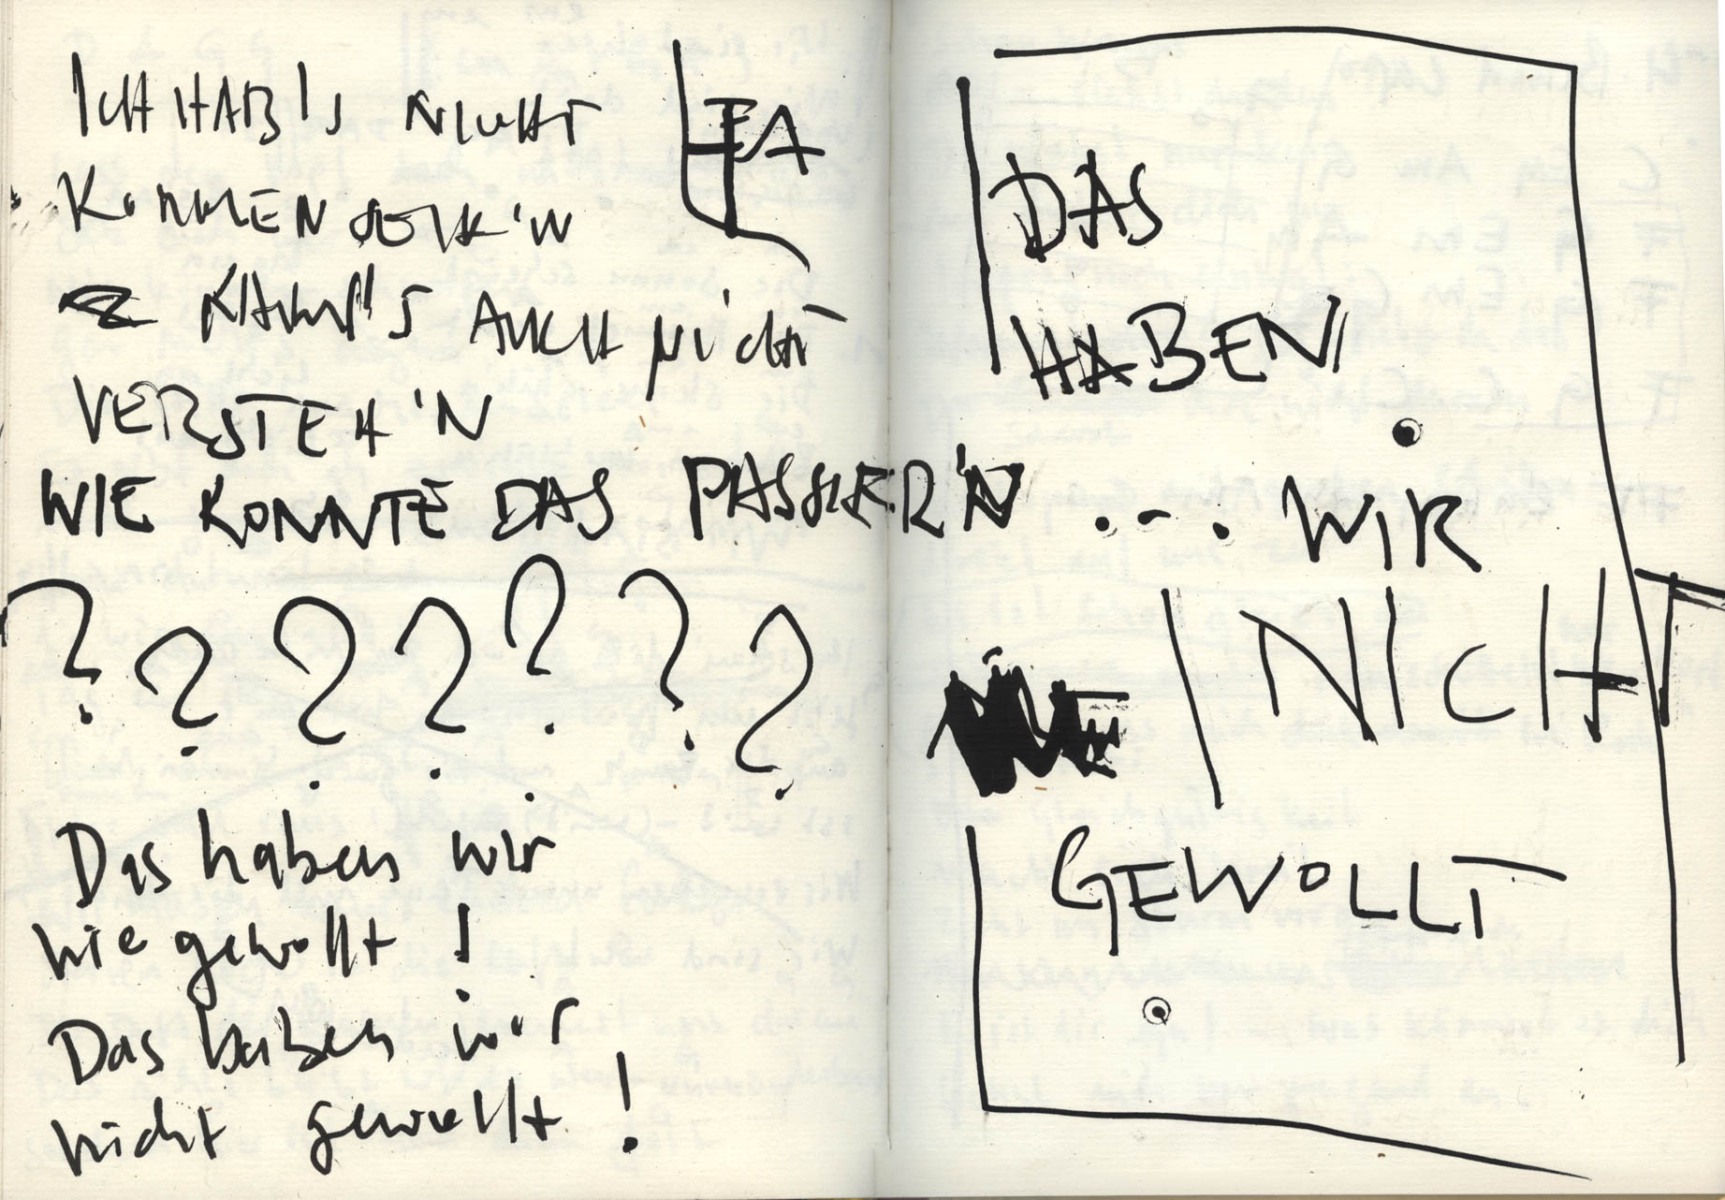 ICH HAB'S NICHT
KOMMEN SEH'N
KANN'S AUCH NICHT
VERSTEH'N
WIE KONNTE DAS PASSIER'N ...
? ? ? ? ? ? ?
Das haben wir
nie gewollt!
Das haben wir
nicht gewollt!
DAS
HABEN
WIR
NICHT
GEWOLLT